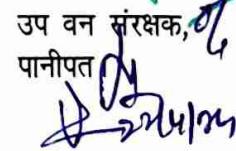 उप वन संरक्षक,
पानीपत